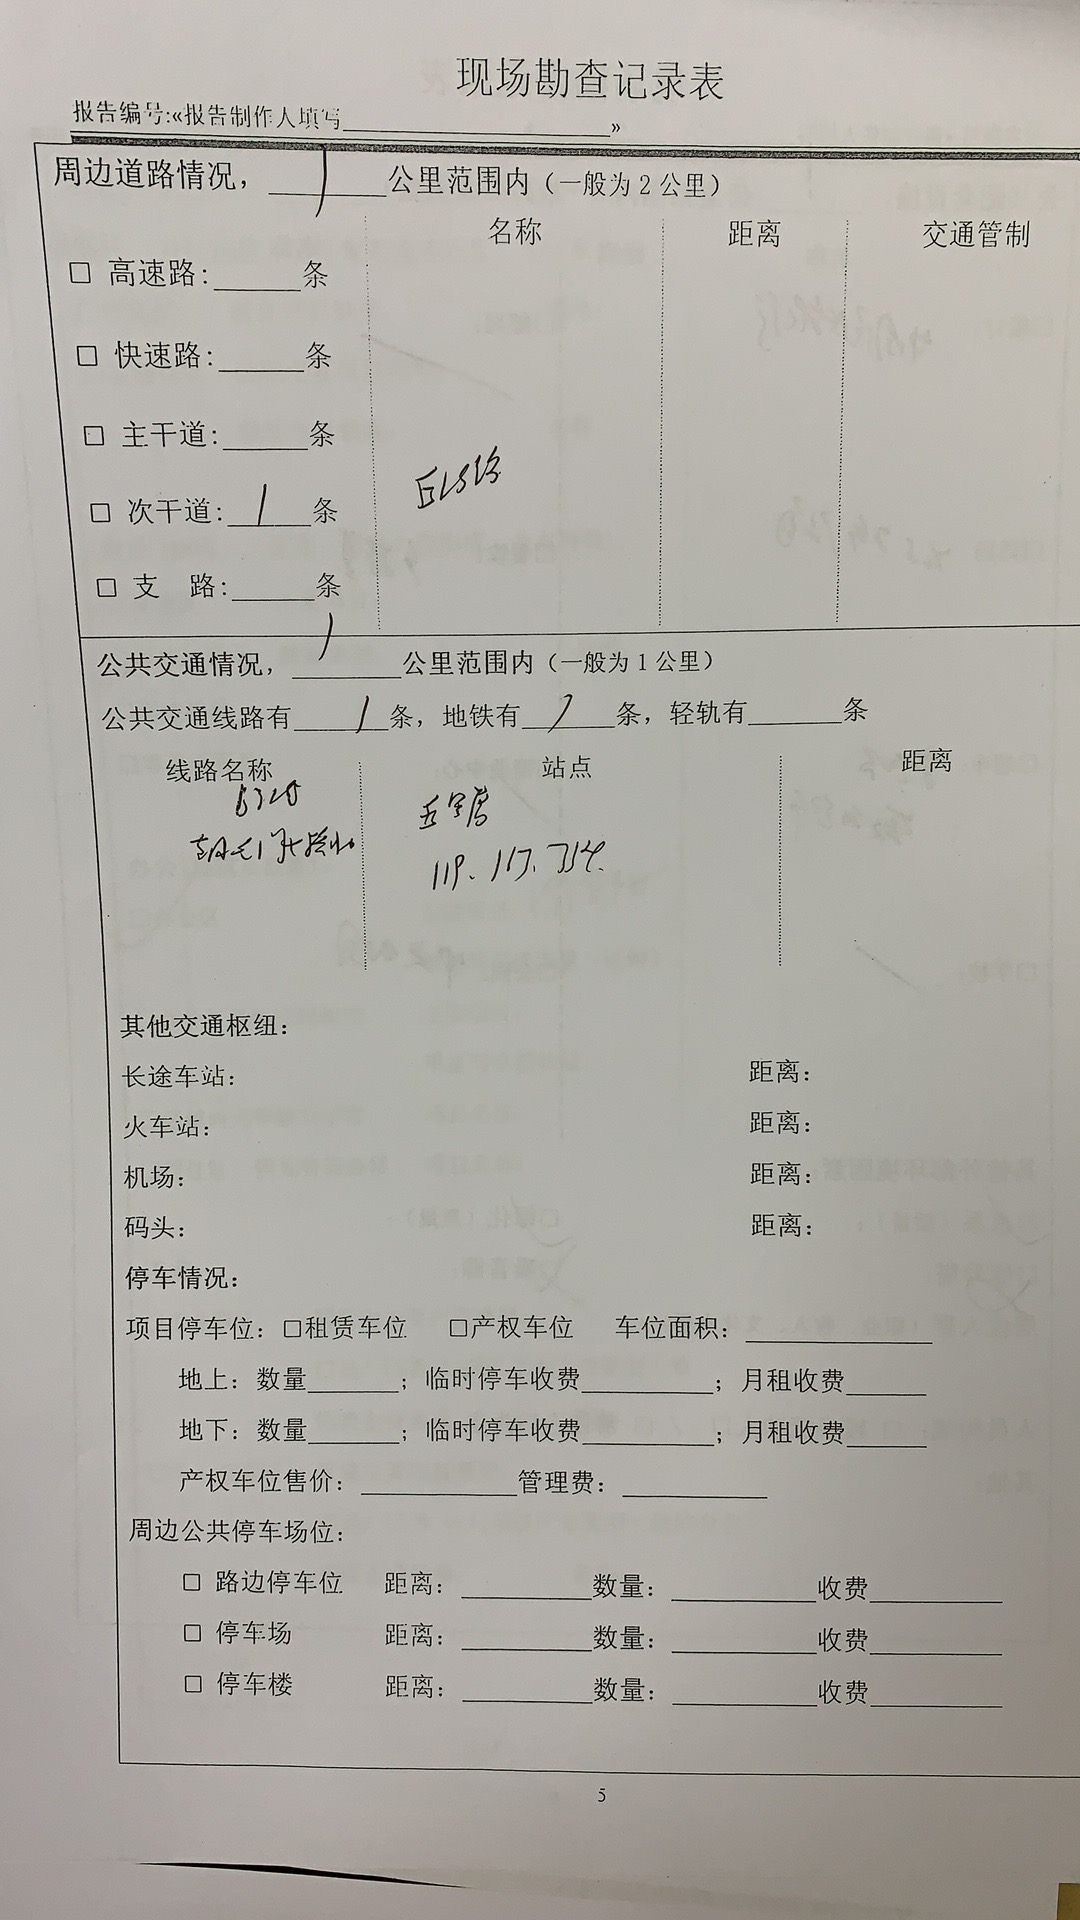 现场勘查记录表
报告编号:«报告制作人填写____________________»
周边道路情况，1公里范围内（一般为2公里）
名称 距离 交通管制
□ 高速路:______条
□ 快速路:______条
□ 主干道:______条
□ 次干道:1条
□ 支 路:______条
公共交通情况，1公里范围内（一般为1公里）
公共交通线路有1条，地铁有______条，轻轨有______条
线路名称 站点 距离
119、117、
其他交通枢纽：
长途车站： 距离：
火车站： 距离：
机场： 距离：
码头： 距离：
停车情况：
项目停车位：□租赁车位 □产权车位 车位面积：____________
地上：数量______；临时停车收费________；月租收费______
地下：数量______；临时停车收费________；月租收费______
产权车位售价：__________管理费：__________
周边公共停车场位：
□ 路边停车位 距离：________数量：________收费________
□ 停车场 距离：________数量：________收费________
□ 停车楼 距离：________数量：________收费________
5